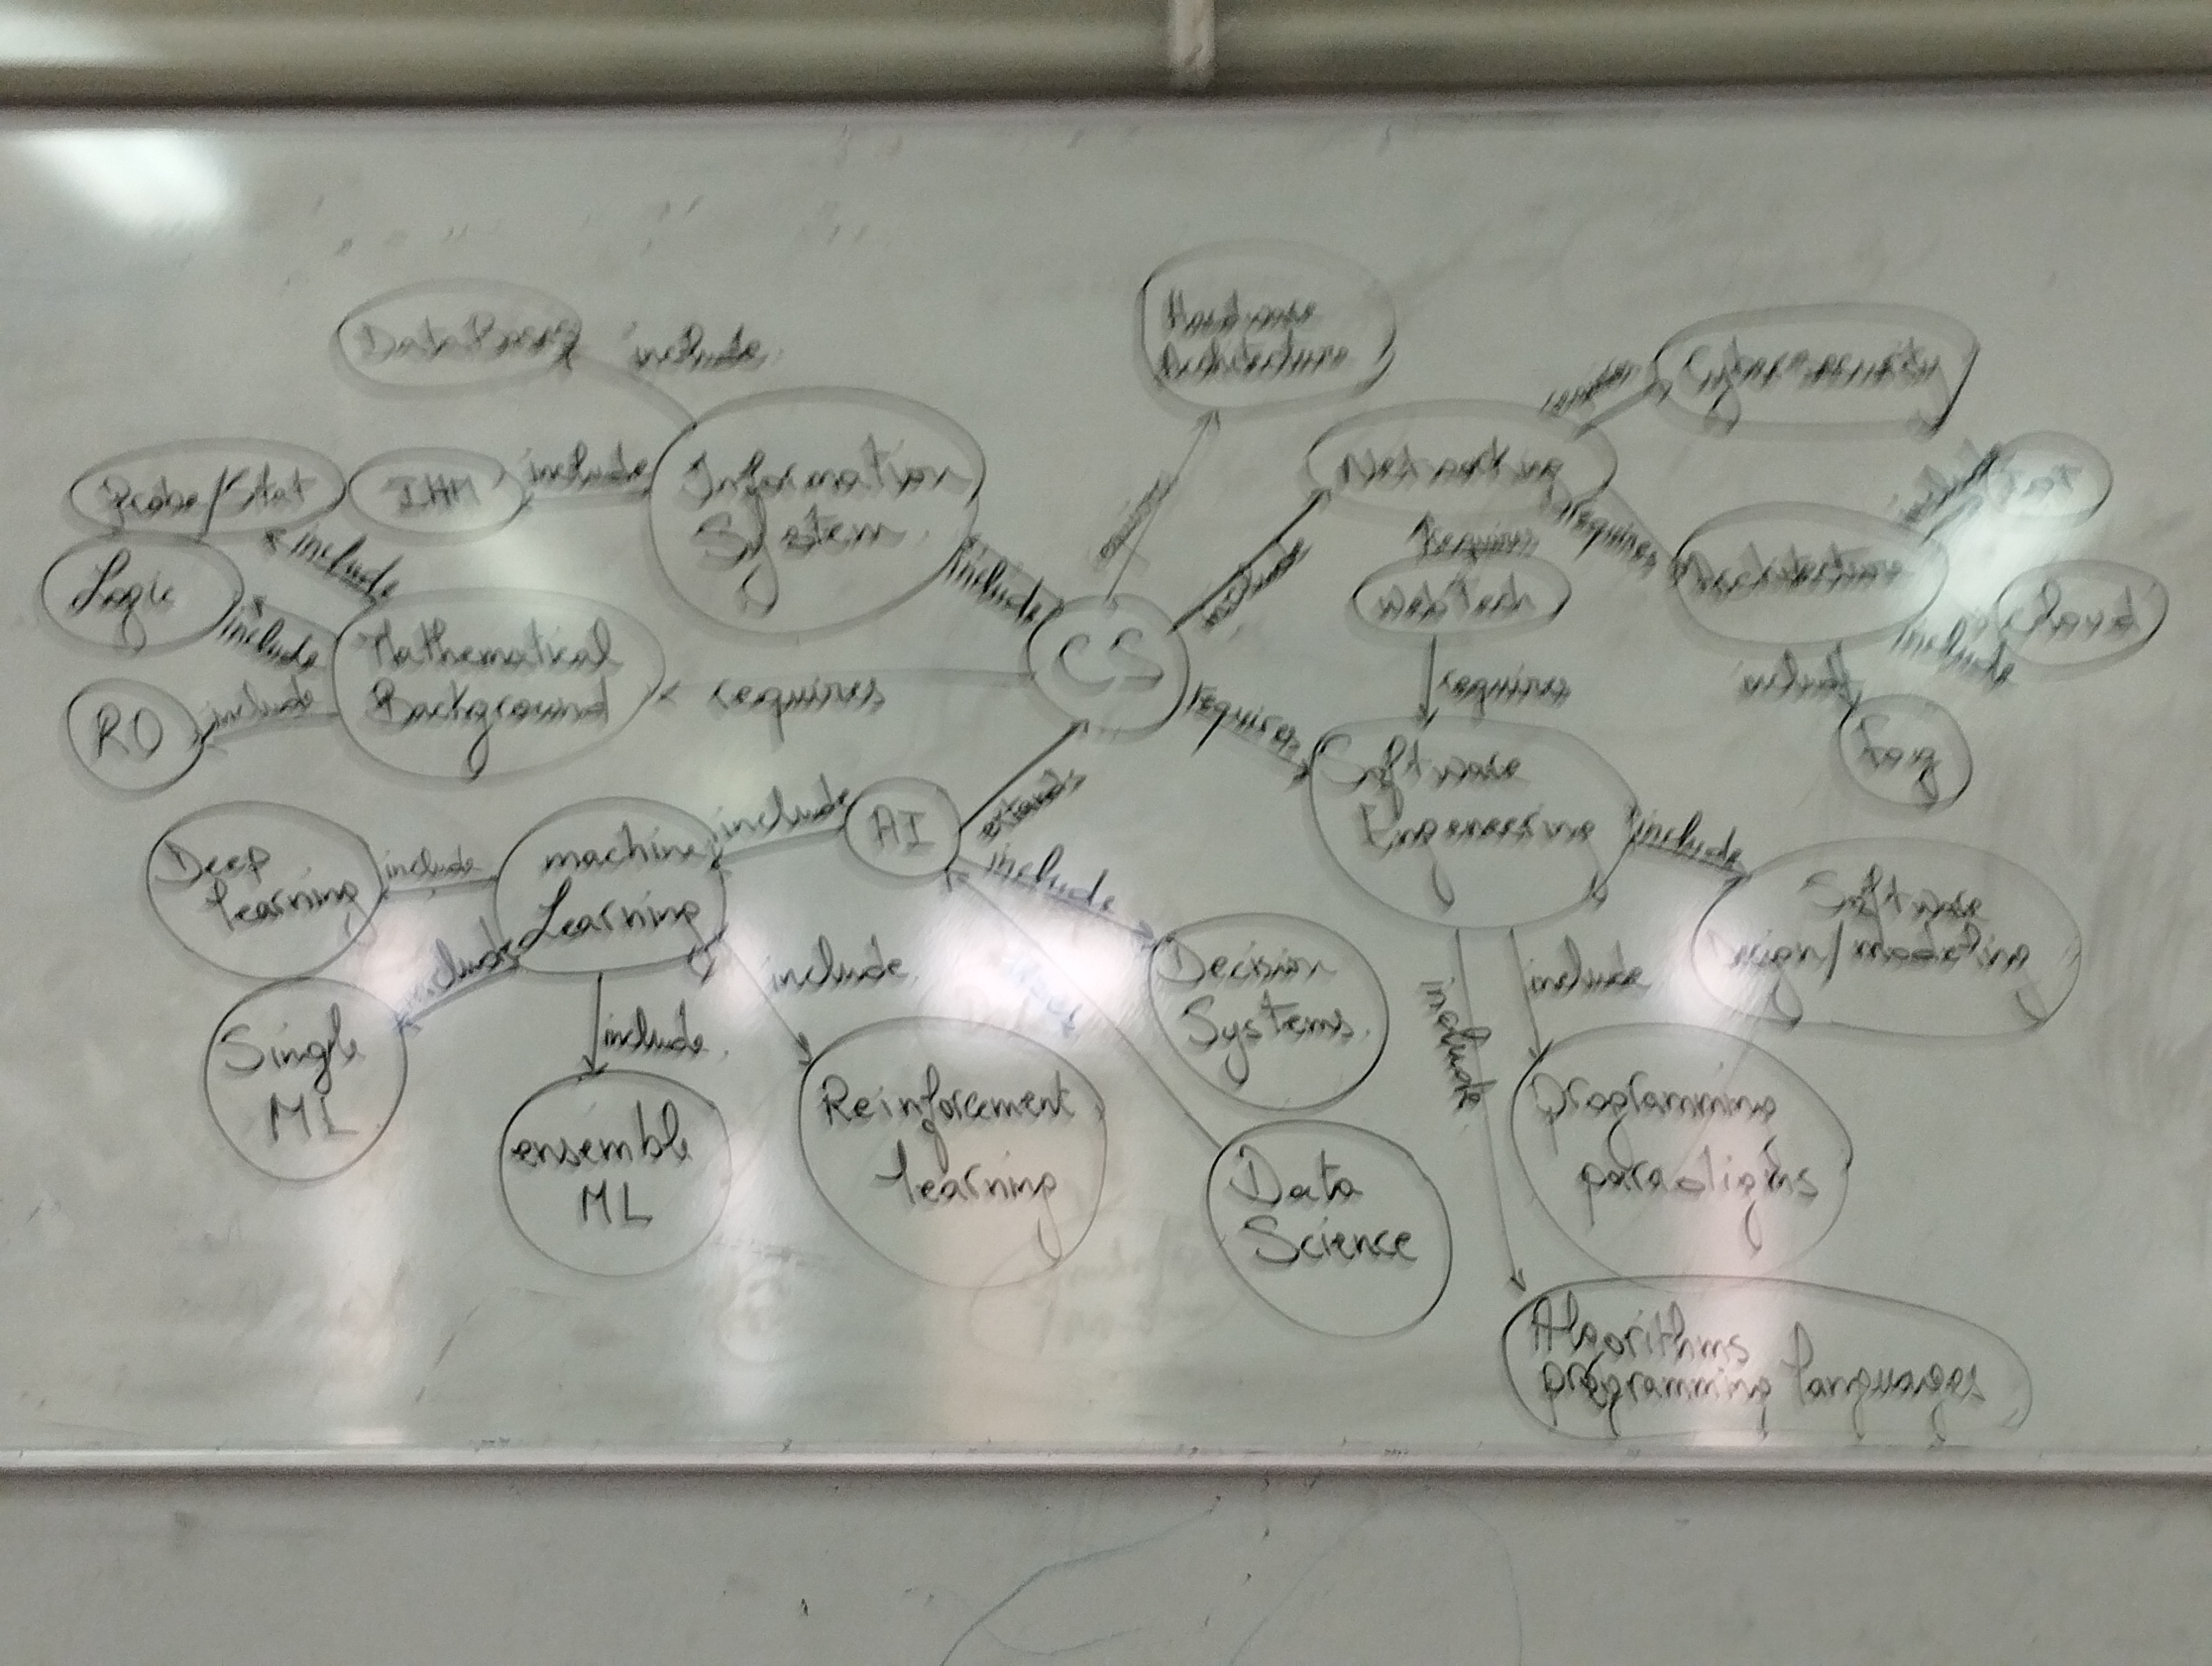 Hardware
Architecture
DataBases
include
Cybersecurity
Information
System
include
IHM
Proba/Stat
Networking
include
Logic
include
include
include
requires
requires
Architecture
include
Cloud
include
Fog
WebTech
requires
CS
Mathematical
Background
requires
include
RO
requires
Software
Engeneering
include
Software
Design/modeling
AI
extends
include
machine
Learning
include
Deep
Learning
include
Single
ML
include
ensemble
ML
include
Reinforcement
Learning
include
Decision
Systems
Data
Science
include
Programming
paradigms
include
Algorithms
programming languages